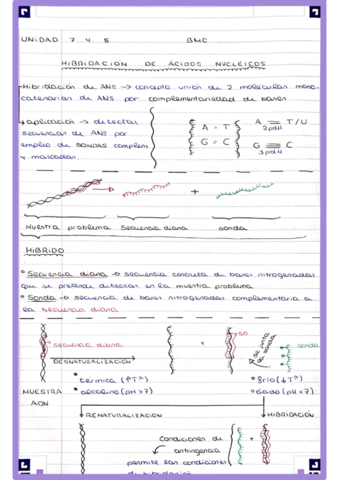 UNIDAD 7 Y 8 BMC
HIBRIDACIÓN DE ÁCIDOS NUCLEICOS
Hibridación de ANS → concepto unión de 2 moléculas mono-
catenarias de ANS por complementariedad de bases
↳ aplicación → detectar
secuencias de ANS por
empleo de SONDAS complem
y marcadas.
A = T
G = C
A T/U
2pdH
G C
3pdH
+
Nuestra problema secuencia diana sonda
HÍBRIDO
Secuencia diana → secuencia concreta de bases nitrogenadas
que se pretende detectar en la muestra problema
Sonda → secuencia de bases nitrogenadas complementaria a
la secuencia diana
secuencia diana + SD se junta la sonda sonda
DESNATURALIZACIÓN
térmica (↑Tª) frío (↓Tª)
MUESTRA alcalino (pH>7) ácido (pH<7)
ADN
RENATURALIZACIÓN HIBRIDACIÓN
Condiciones de
astringencia
permite las condiciones